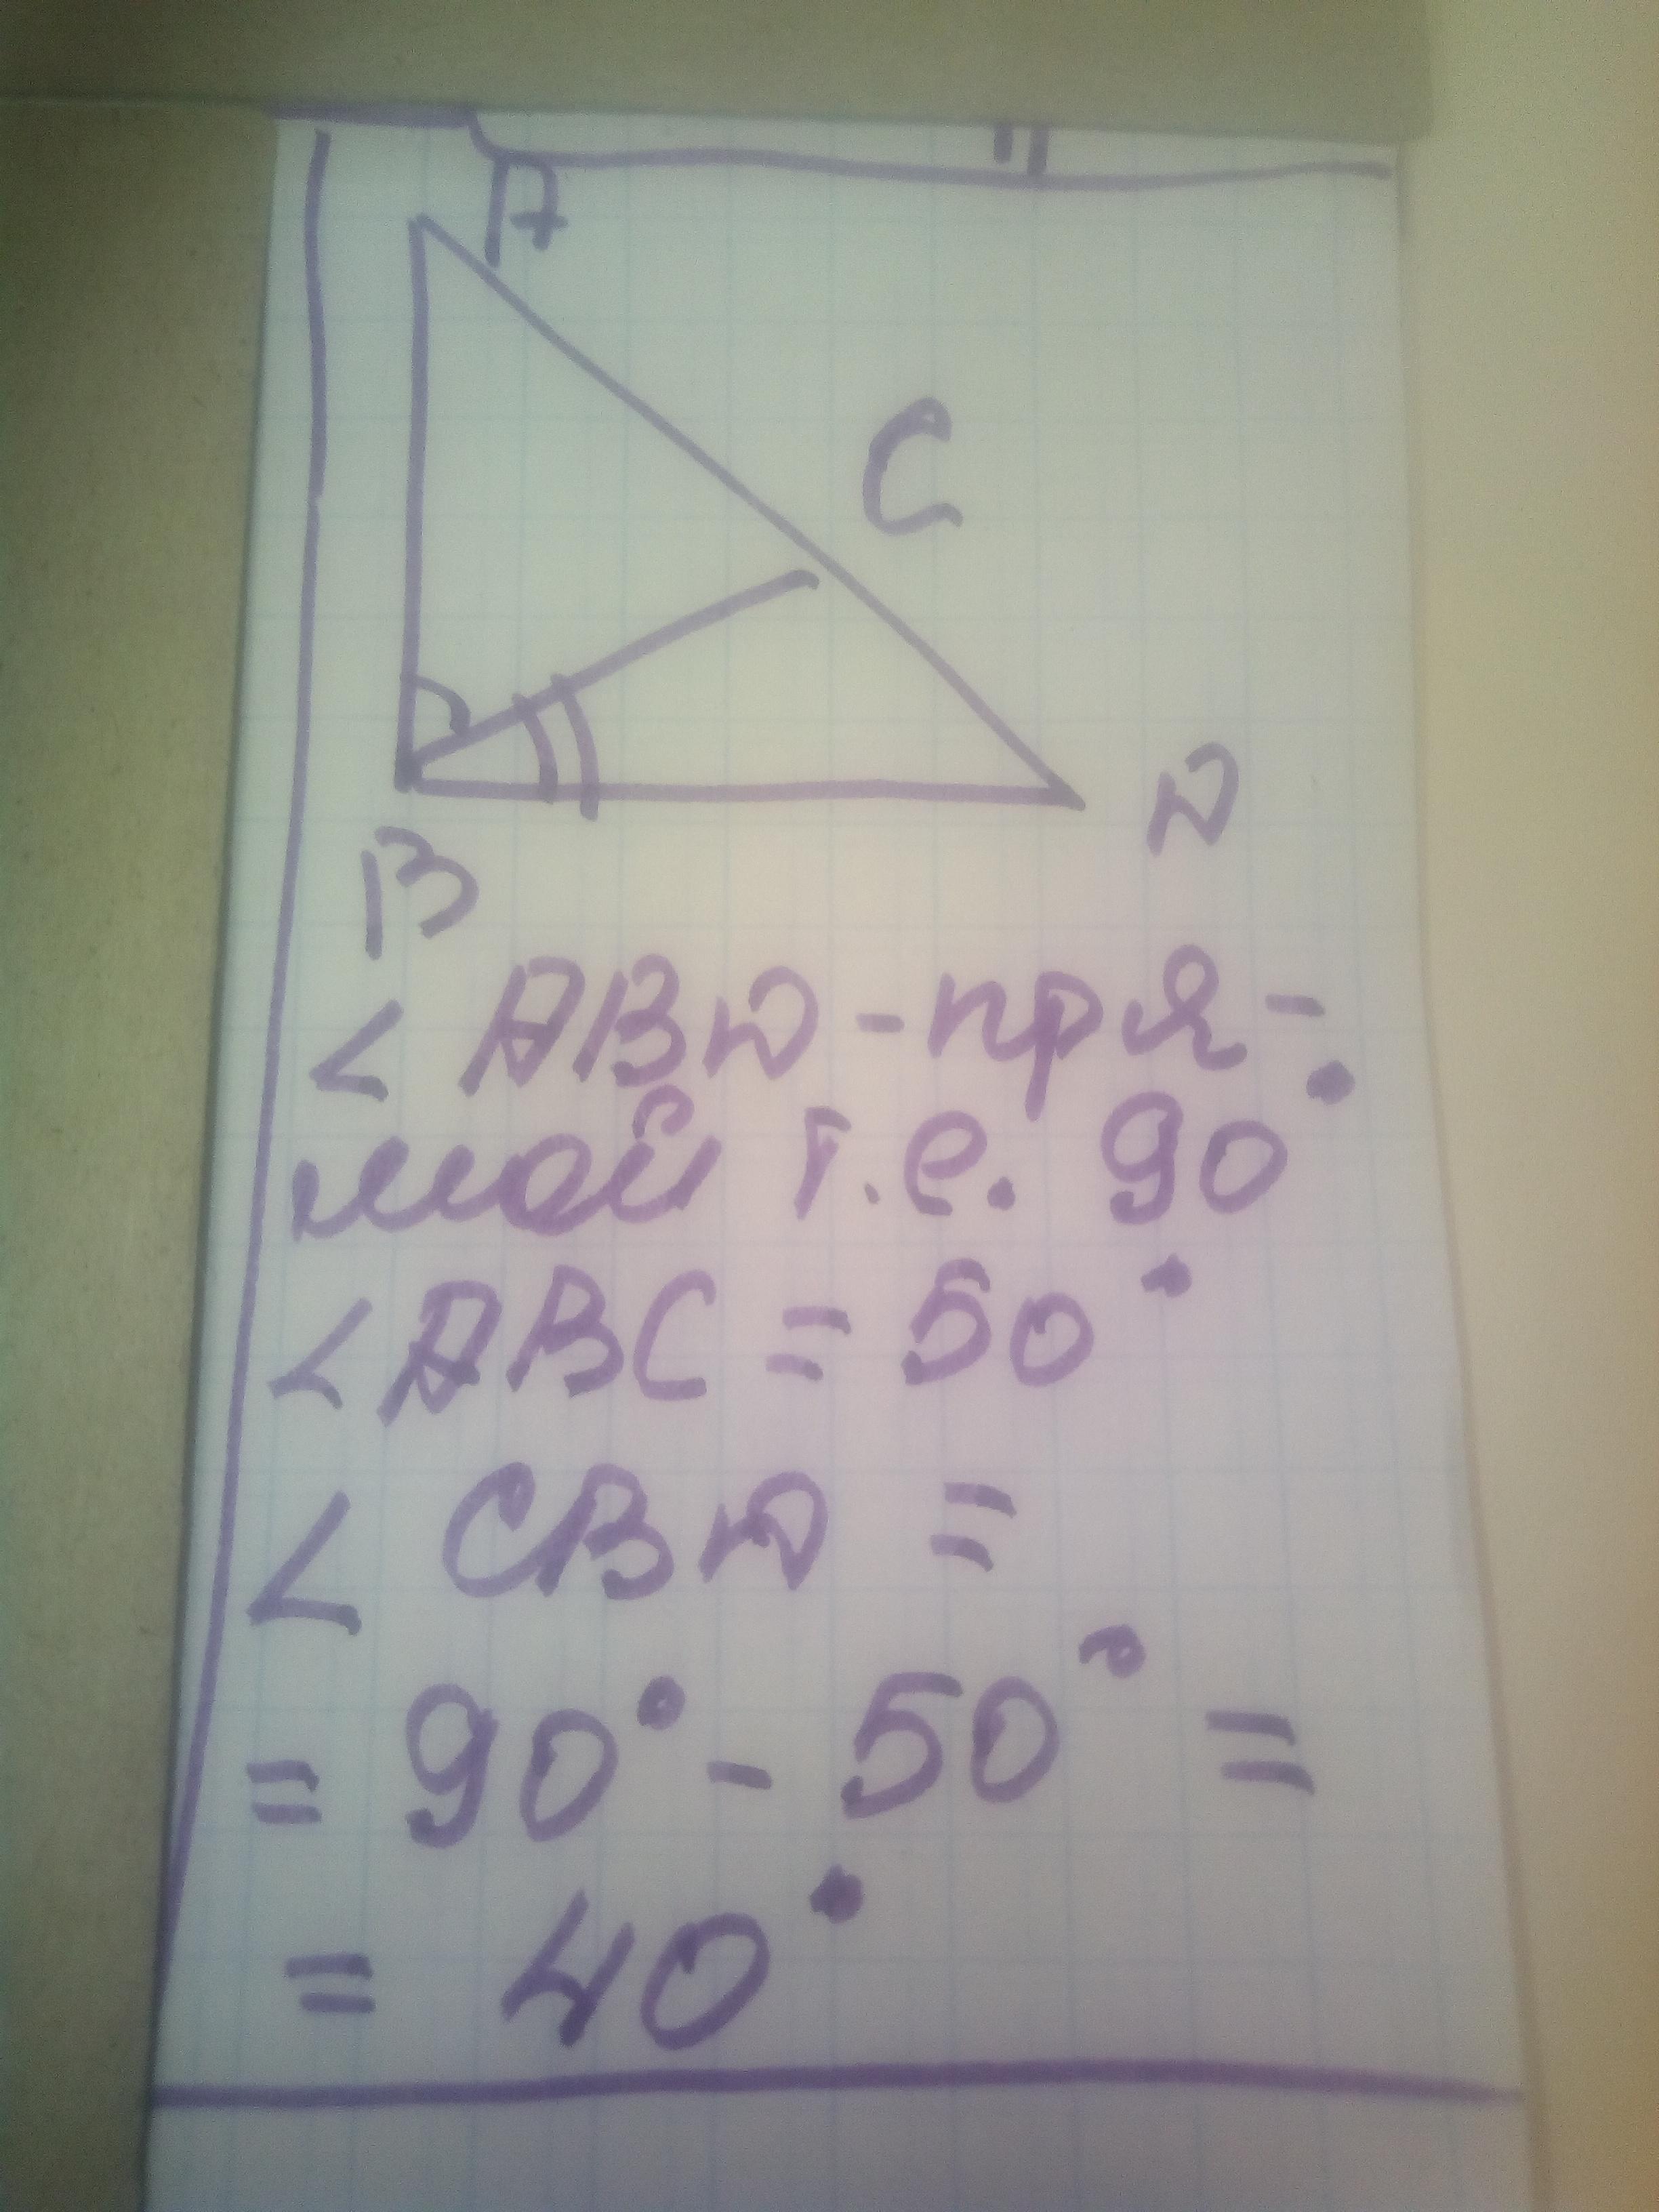 A
C
B
D
<ABD - пря-
мой т.е. 90°
<ABC = 50°
< CBD =
= 90° - 50° =
= 40°